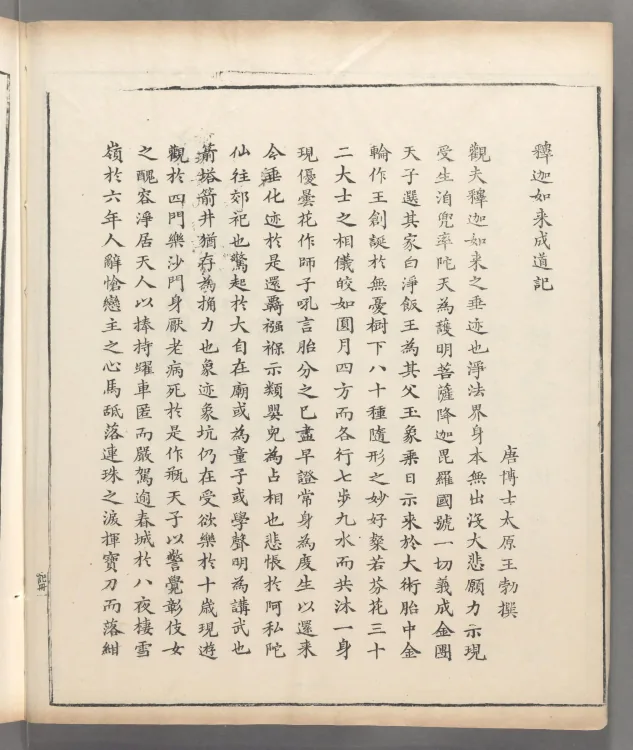 釋迦如来成道記
唐博士太原王勃撰
觀夫釋迦如来之垂迹也淨法界身本無出没大悲願力示現
受生洎兜率陀天為護明菩薩降迦毘羅國號一切義成金團
天子選其家白淨飯王為其父玉象乗日示来於大術胎中金
輪作王創誕於無憂樹下八十種隨形之妙好粲若芬花三十
二大士之相儀皎如圓月四方而各行七步九水而共沐一身
現優曇花作師子吼言胎分之已盡早證常身為度生以還来
今垂化迹於是還羇襁褓示類嬰兒為占相也悲悵於阿私陀
仙往郊祀也驚起於大自在廟或為童子或學聲明為講武也
箭塔箭井猶存為捔力也象迹象坑仍在受欲樂於十歳現遊
觀於四門樂沙門身厭老病死於是作瓶天子以警覺彰伎女
之醜容淨居天人以捧持躍車匿而嚴駕逾春城於八夜棲雪
嶺於六年人辭愴戀主之心馬舐落連珠之淚揮寶刀而落紺
記冊